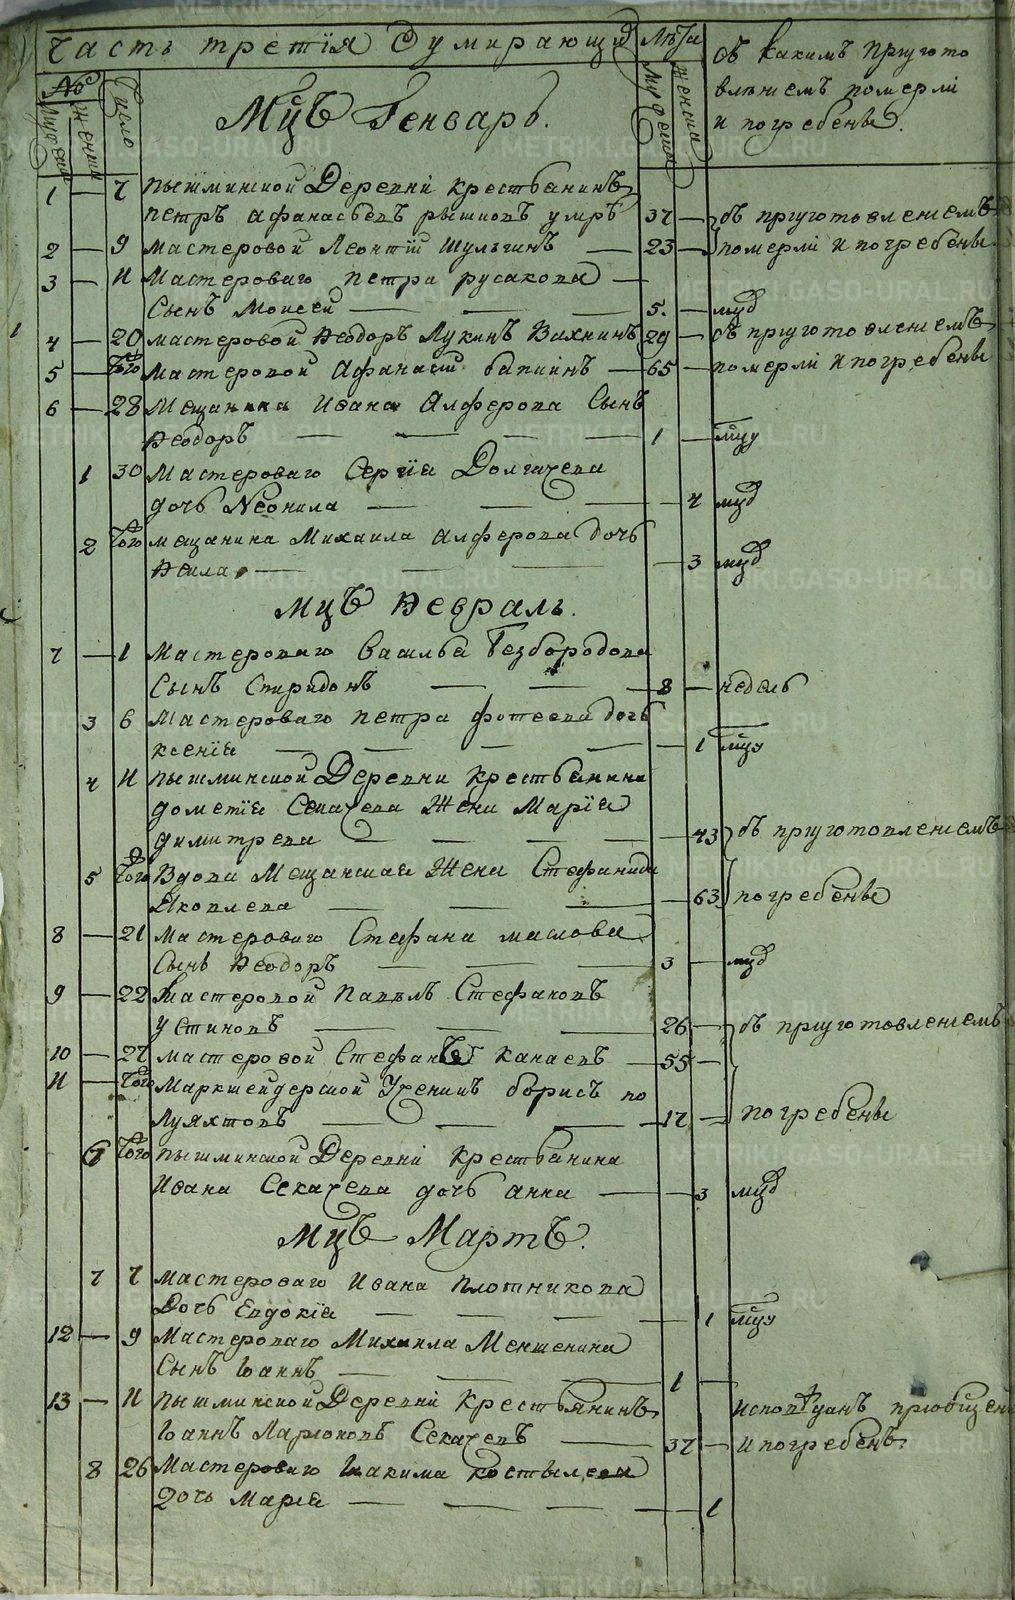 Часть третія О умирающих Лѣта Съ какимъ пригото
№ Число Мужеска Женска влѣніемъ померли
Мужеска Женска Мцъ Генварь. и погребены.
1 — 7 Пышминской Деревни крестьянинъ
Петръ Афанасьевъ умръ 37 — съ приготовленіемъ
2 — 9 Мастеровой Леонтій Шульгинъ — 23 — померли и погребены
3 — 11 Мастероваго Петра Русакова —
Сынъ Моисей — — — 5. — мцд
4 — 20 Мастеровой Ѳеодоръ Лукинъ Вахнинъ 29 — съ приготовленіемъ
5 — Того Мастеровой Афанасій — 65 — померли и погребены
6 — 28 Мещанина Ивана Алферова Сынъ
Ѳеодоръ — — — — 1 — мцу
1 30 Мастероваго Сергія Долгачева
дочь Неонила — — — — 4 мцд
2 Того мещанина Михаила Алферова дочь
— — — — 3 мцд
Мцъ Ѳевраль.
7 — 1 Мастероваго Василья Безбородова
Сынъ Спиридонъ — — — 8 — недель
3 6 Мастероваго Петра Фотеева дочь
Ксенія — — — — — 1 мцу
4 11 Пышминской Деревни крестьянина
Дометія Секачева Жена Марія
Димитрева — — — — — 43 съ приготовленіемъ
5 Того Вдова Мещанская Жена Стефанида
Яковлева — — — — 63 погребены
8 — 21 Мастероваго Стефана Маслова
Сынъ Ѳеодоръ — — — 3 — мцд
9 — 22 Мастеровой Павелъ Стефановъ
Устиновъ — — — 26 — съ приготовленіемъ
10 — 27 Мастеровой Стефанъ Канаевъ — 55 —
11 — Того Маркшейдерской Ученикъ Борисъ По
луяхтовъ — — — 17 — погребены
6 Того Пышминской Деревни крестьянина
Ивана Секачева дочь Анна — — 3 мцд
Мцъ Мартъ.
7 7 Мастероваго Ивана Плотникова
Дочь Евдокія — — — — 1 мцу
12 — 9 Мастероваго Михаила Меншенина
Сынъ Іоаннъ — — — — 1 —
13 — 11 Пышминской Деревни Крестьянинъ исповѣданъ пріобщенъ
Іоаннъ Ларіоновъ Секачевъ — 37 — и погребенъ
8 26 Мастероваго Іакима Костылева
Дочь Марія — — — — 1
METRIKI.GASO-URAL.RU